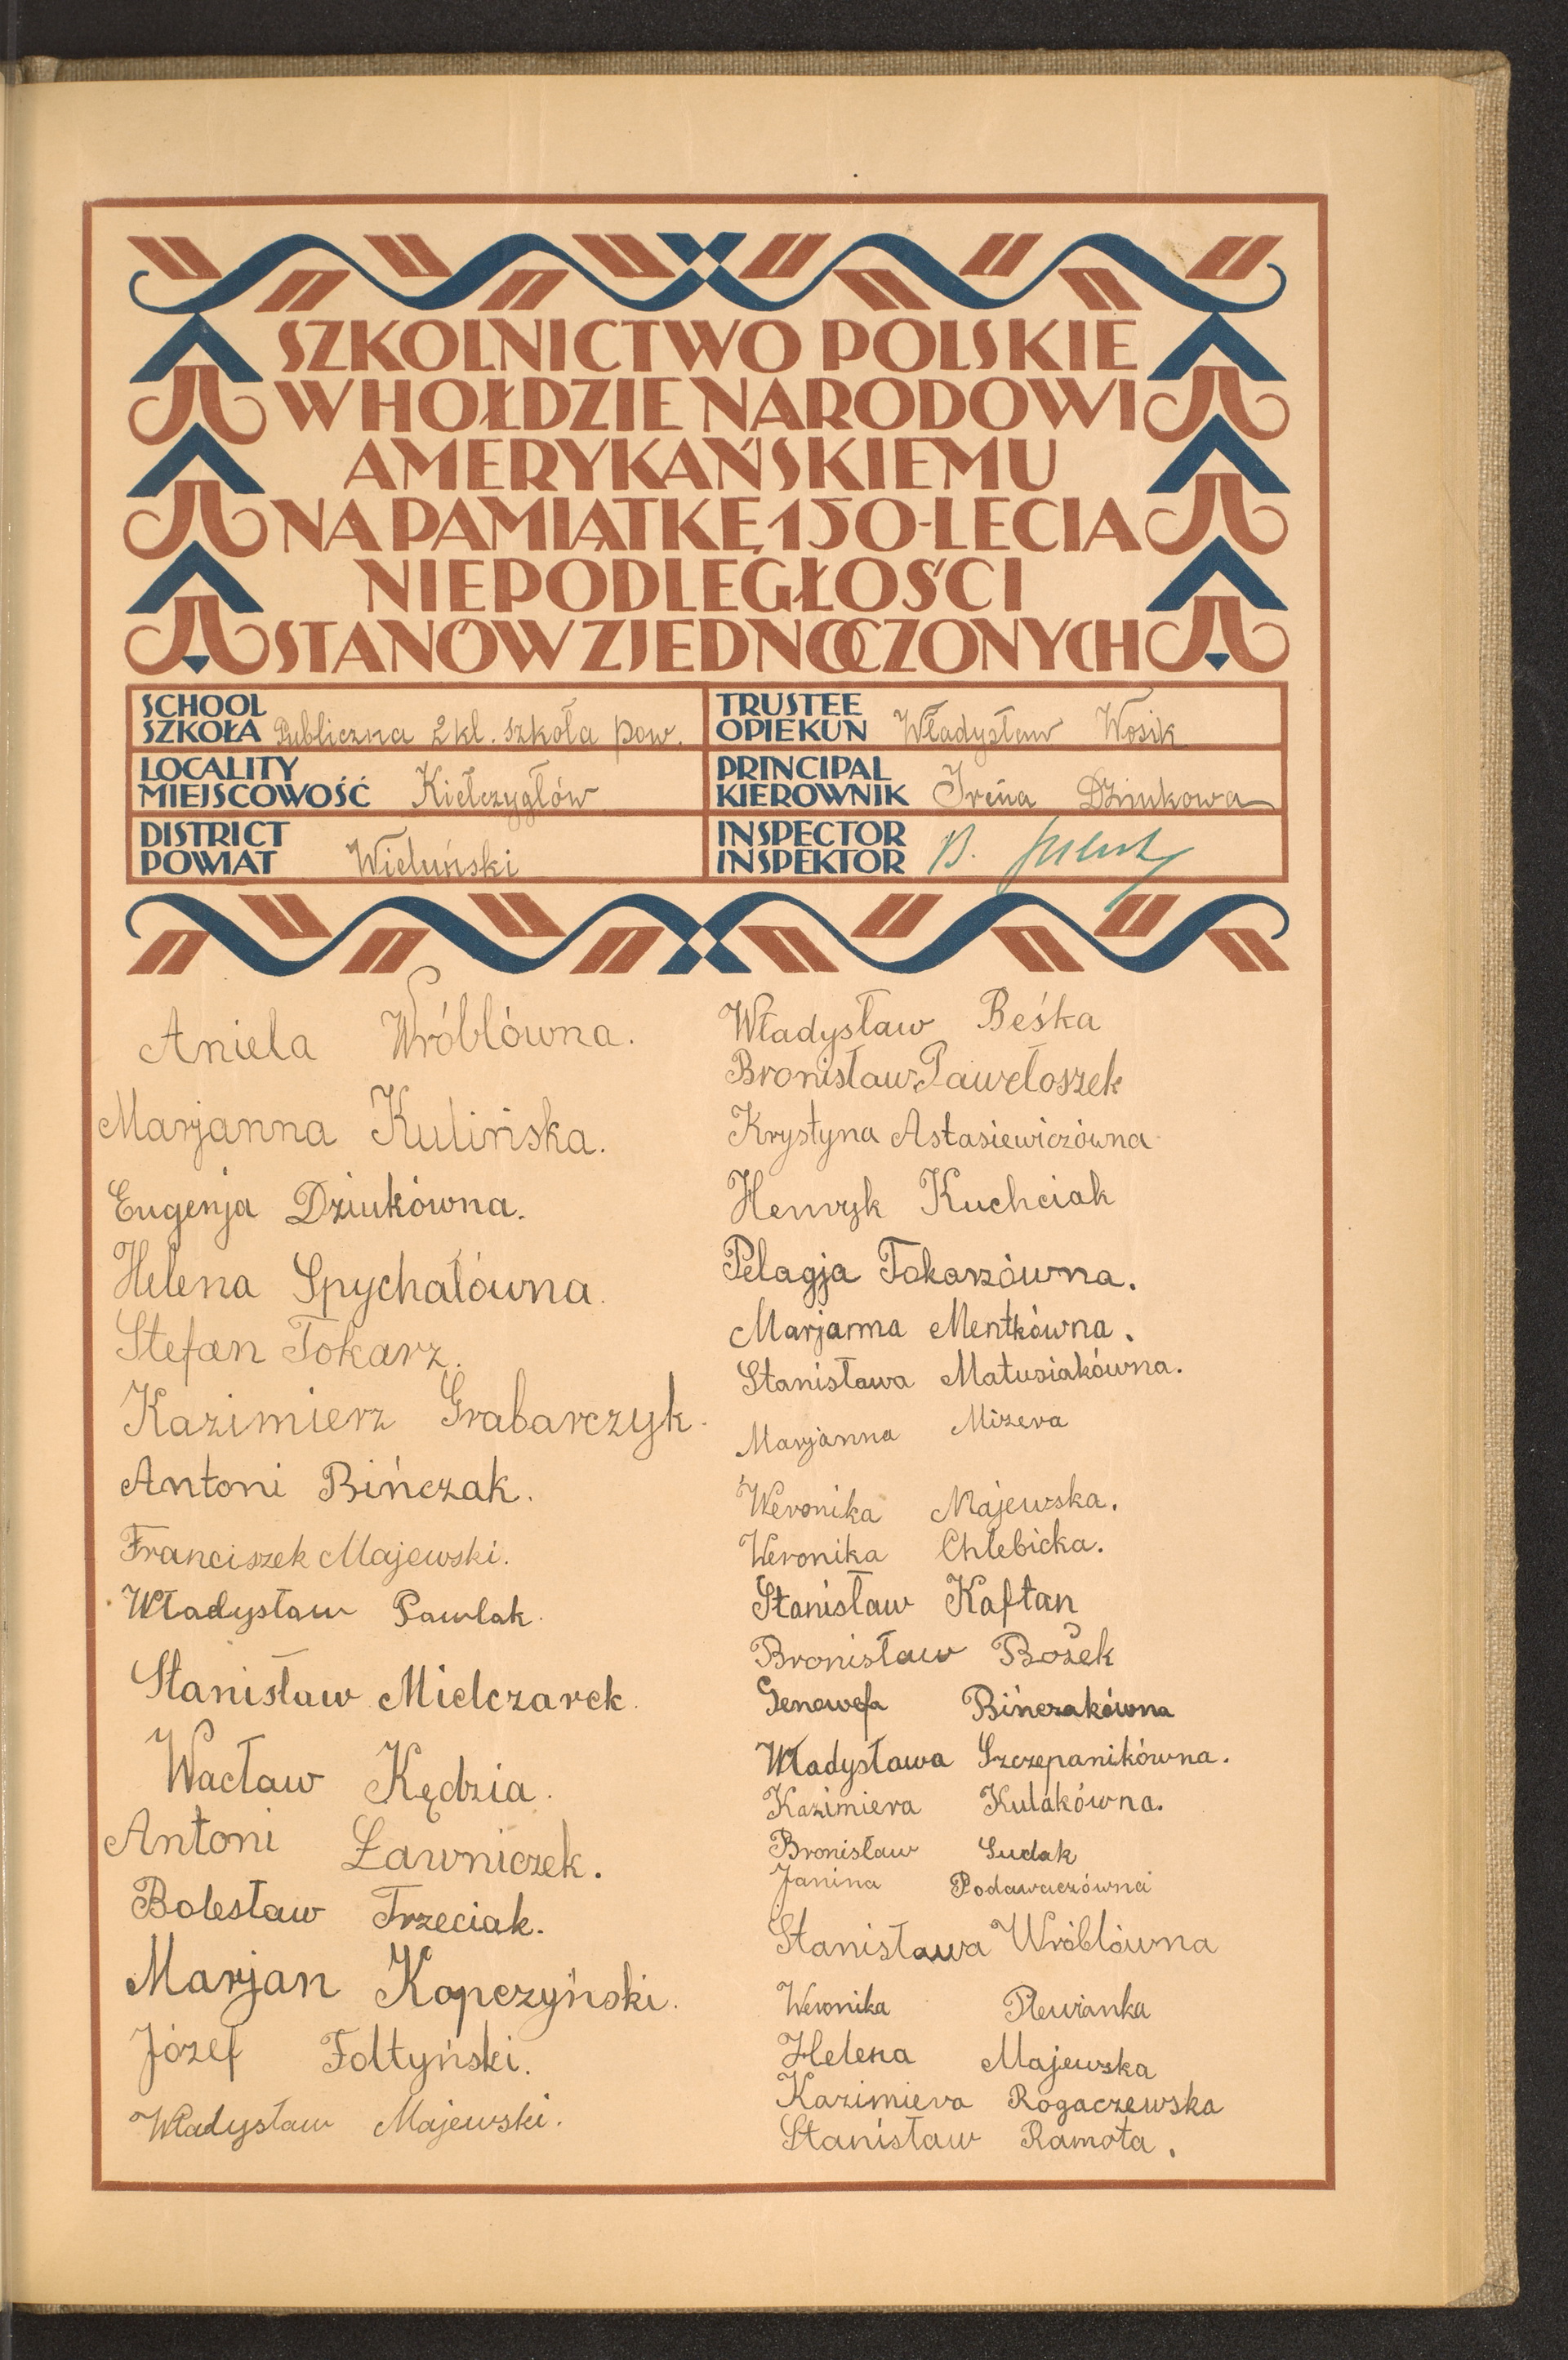 SZKOLNICTWO POLSKIE
W HOŁDZIE NARODOWI
AMERYKAŃSKIEMU
NA PAMIĄTKĘ 150-LECIA
NIEPODLEGŁOŚCI
STANÓW ZJEDNOCZONYCH
SCHOOL
SZKOŁA Publiczna 2 kl. szkoła pow.
LOCALITY
MIEJSCOWOŚĆ Kiełczygłów
DISTRICT
POWIAT Wieluński
TRUSTEE
OPIEKUN Władysław Wosik
PRINCIPAL
KIEROWNIK Irena Dziukowa
INSPECTOR
INSPEKTOR B.
Aniela Wróblówna.
Marjanna Kulińska.
Eugenja Dziukówna.
Helena Spychałówna.
Stefan Tokarz.
Kazimierz Grabarczyk.
Antoni Bińczak.
Franciszek Majewski.
Władysław Pawlak.
Stanisław Mielczarek.
Wacław Kędzia.
Antoni Ławniczek.
Bolesław Trzeciak.
Marjan Kopczyński.
Józef Fołtyński.
Władysław Majewski.
Władysław Beśka
Bronisław Pawełoszek
Krystyna Astasiewiczówna
Henryk Kuchciak
Pelagja Tokarzówna.
Marjanna Mentkówna.
Stanisława Matusiakówna.
Marjanna Mizera
Weronika Majewska.
Weronika Chlebicka.
Stanisław Kaftan
Bronisław Bożek
Genowefa Bińczakówna
Władysława Szczepanikówna.
Kazimiera Kulakówna.
Bronisław Sudak
Janina Podawaczówna
Stanisława Wróblówna
Weronika
Helena Majewska
Kazimiera Rogaczewska
Stanisław Ramota.